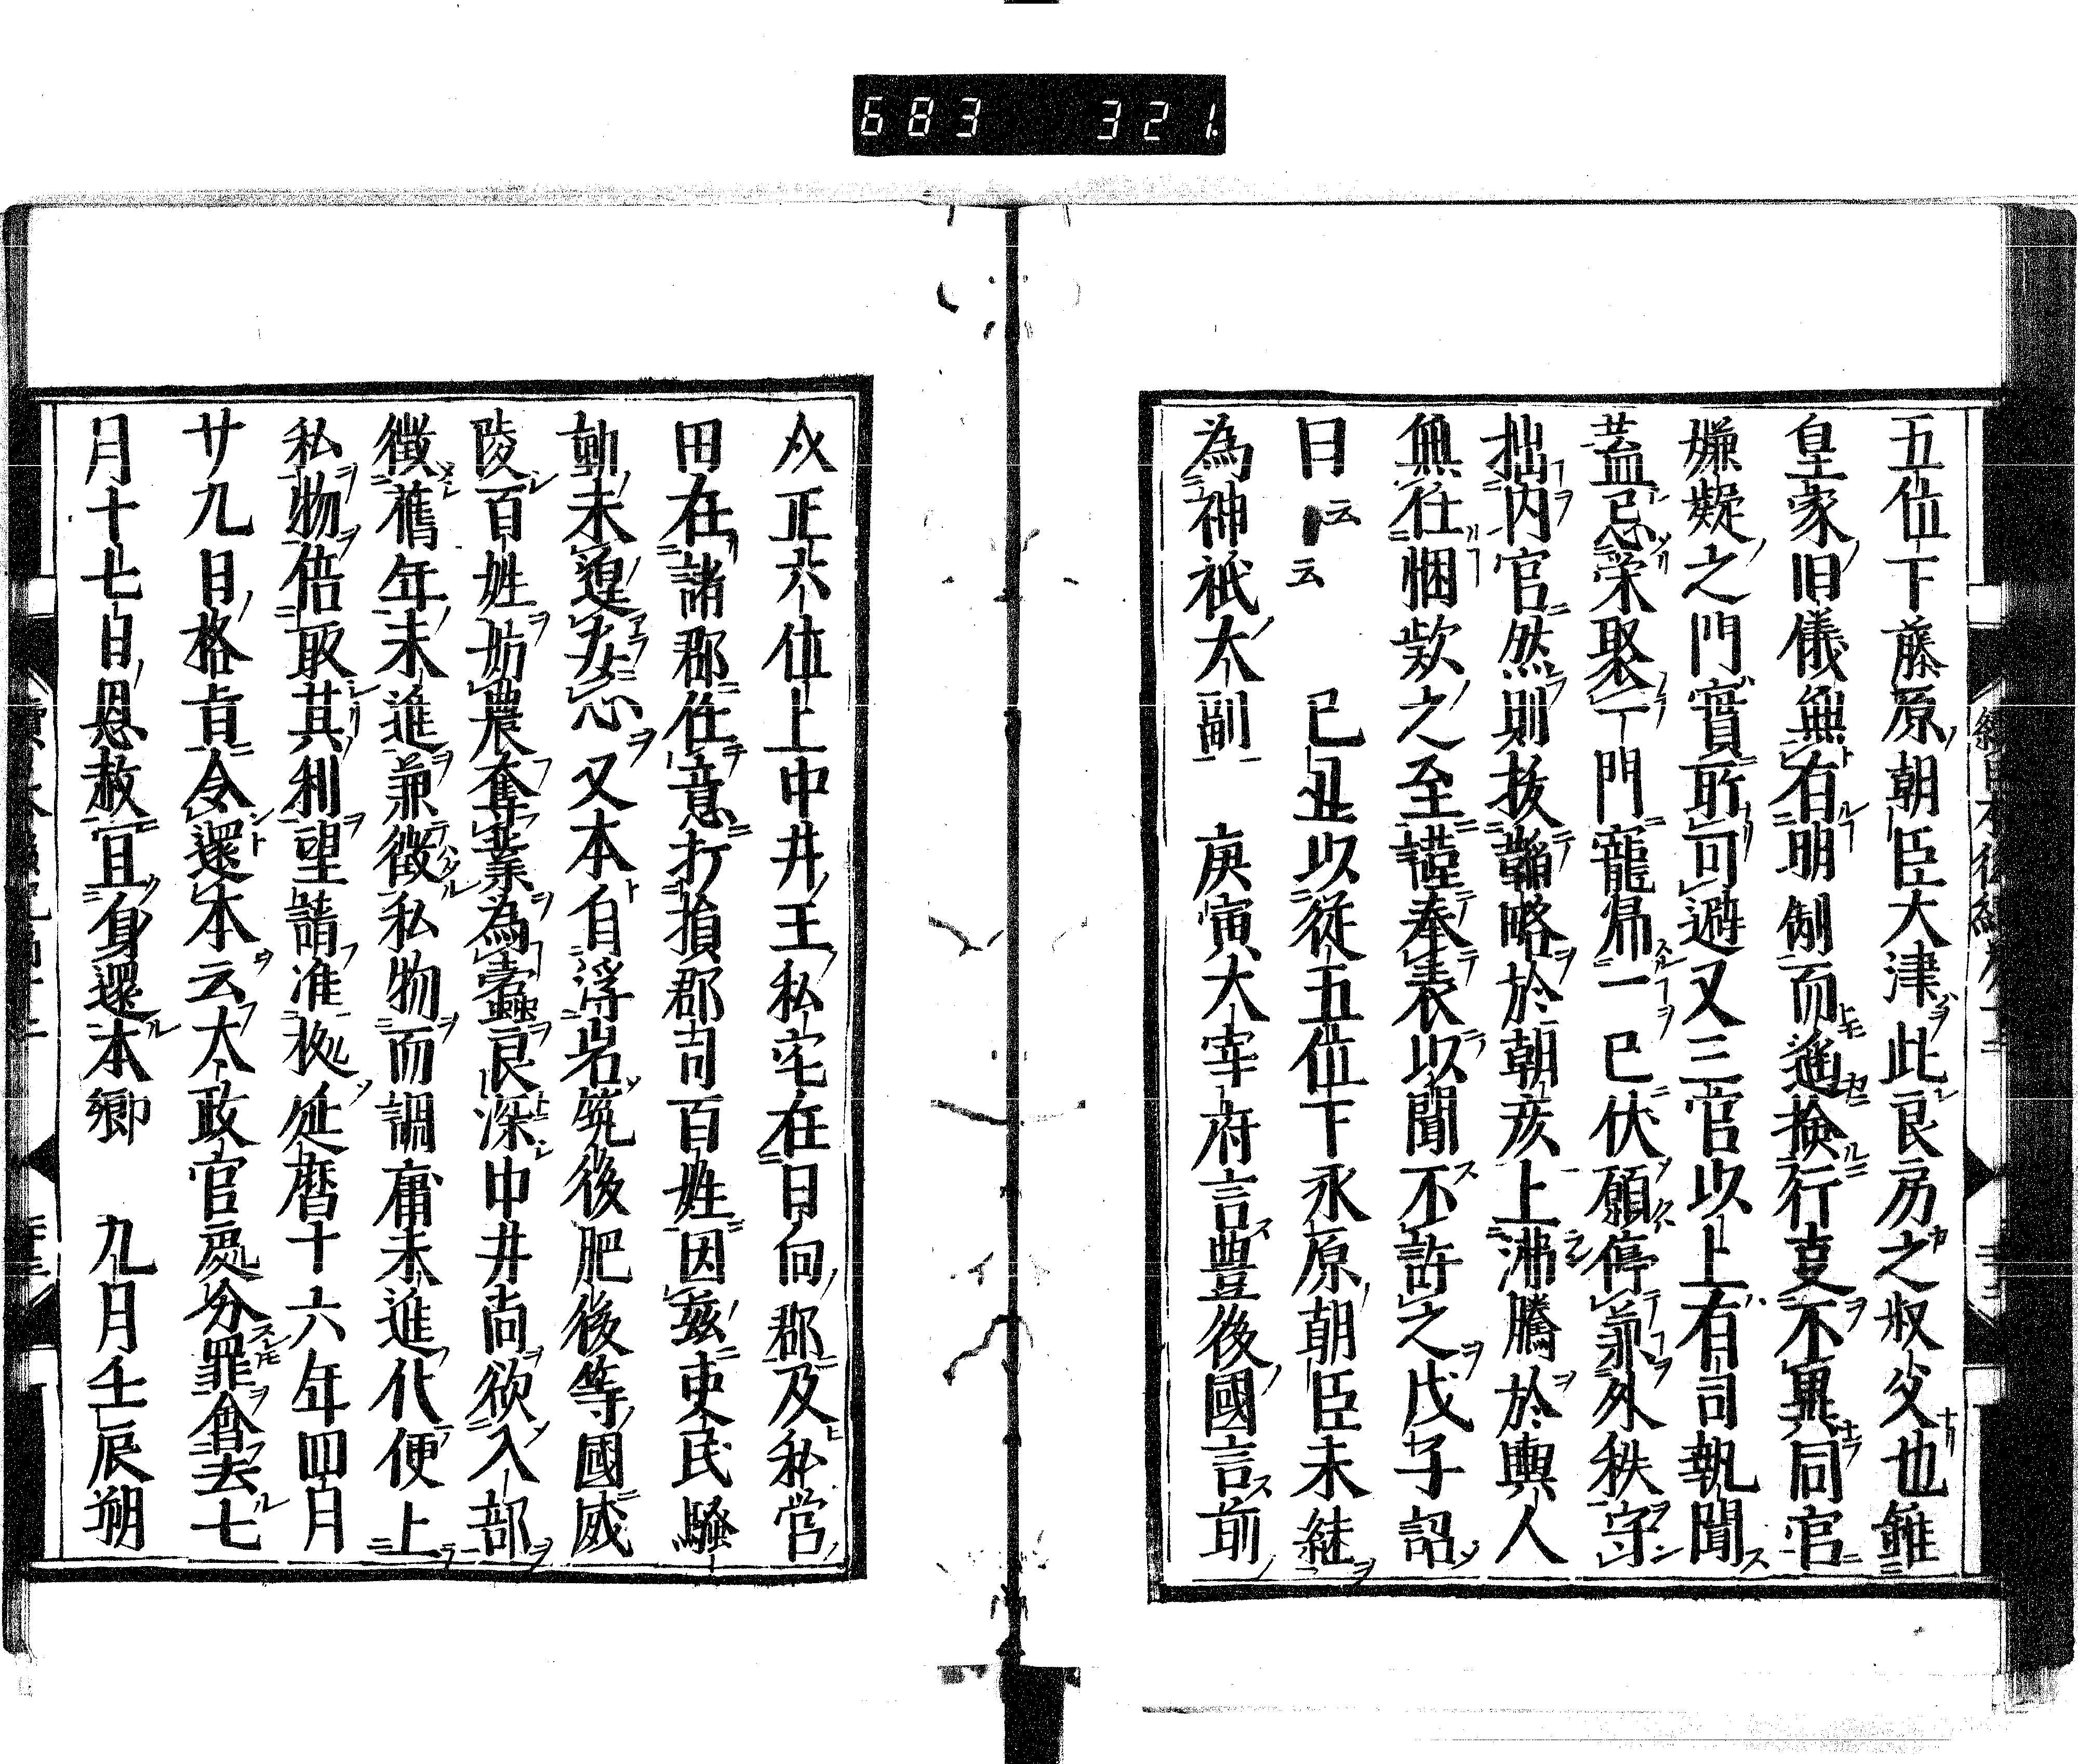 683 321.
五位下藤原朝臣大津此良房之叔父也雖
皇家旧儀無有明制而遥撿行㕝不異同官
嫌疑之門實所可避又三官以上有司執聞
蓋忌栄聚一門寵帰一已伏願停兼外秩守
拙内官然則抜鞱略於朝亥上沸騰於輿人
無任悃款之至謹奉表以聞不許之戊子詔
曰云云 已丑以從五位下永原朝臣末継
為神祇大副 庚寅大宰府言豊後國言前
介正六位上中井王私宅在日向郡及私営
田在諸郡任意打損郡司百姓因茲吏民騒
動未遑安心又本自浮宕筑後肥後等國威
陵百姓妨農奪業為蠹良深中井尚欲入部
徴舊年未進兼徴私物而調庸未進代便上
私物倍取其利望請准拠延暦十六年四月
廿九日格旨令還本云太政官處分罪會去七
月十七日恩赦宜身還本郷 九月壬辰朔